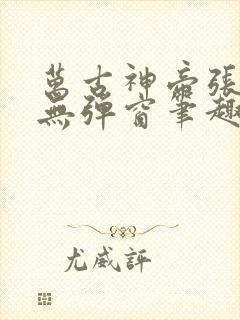 萬古神帝張
無彈窗筆趣
尤威評